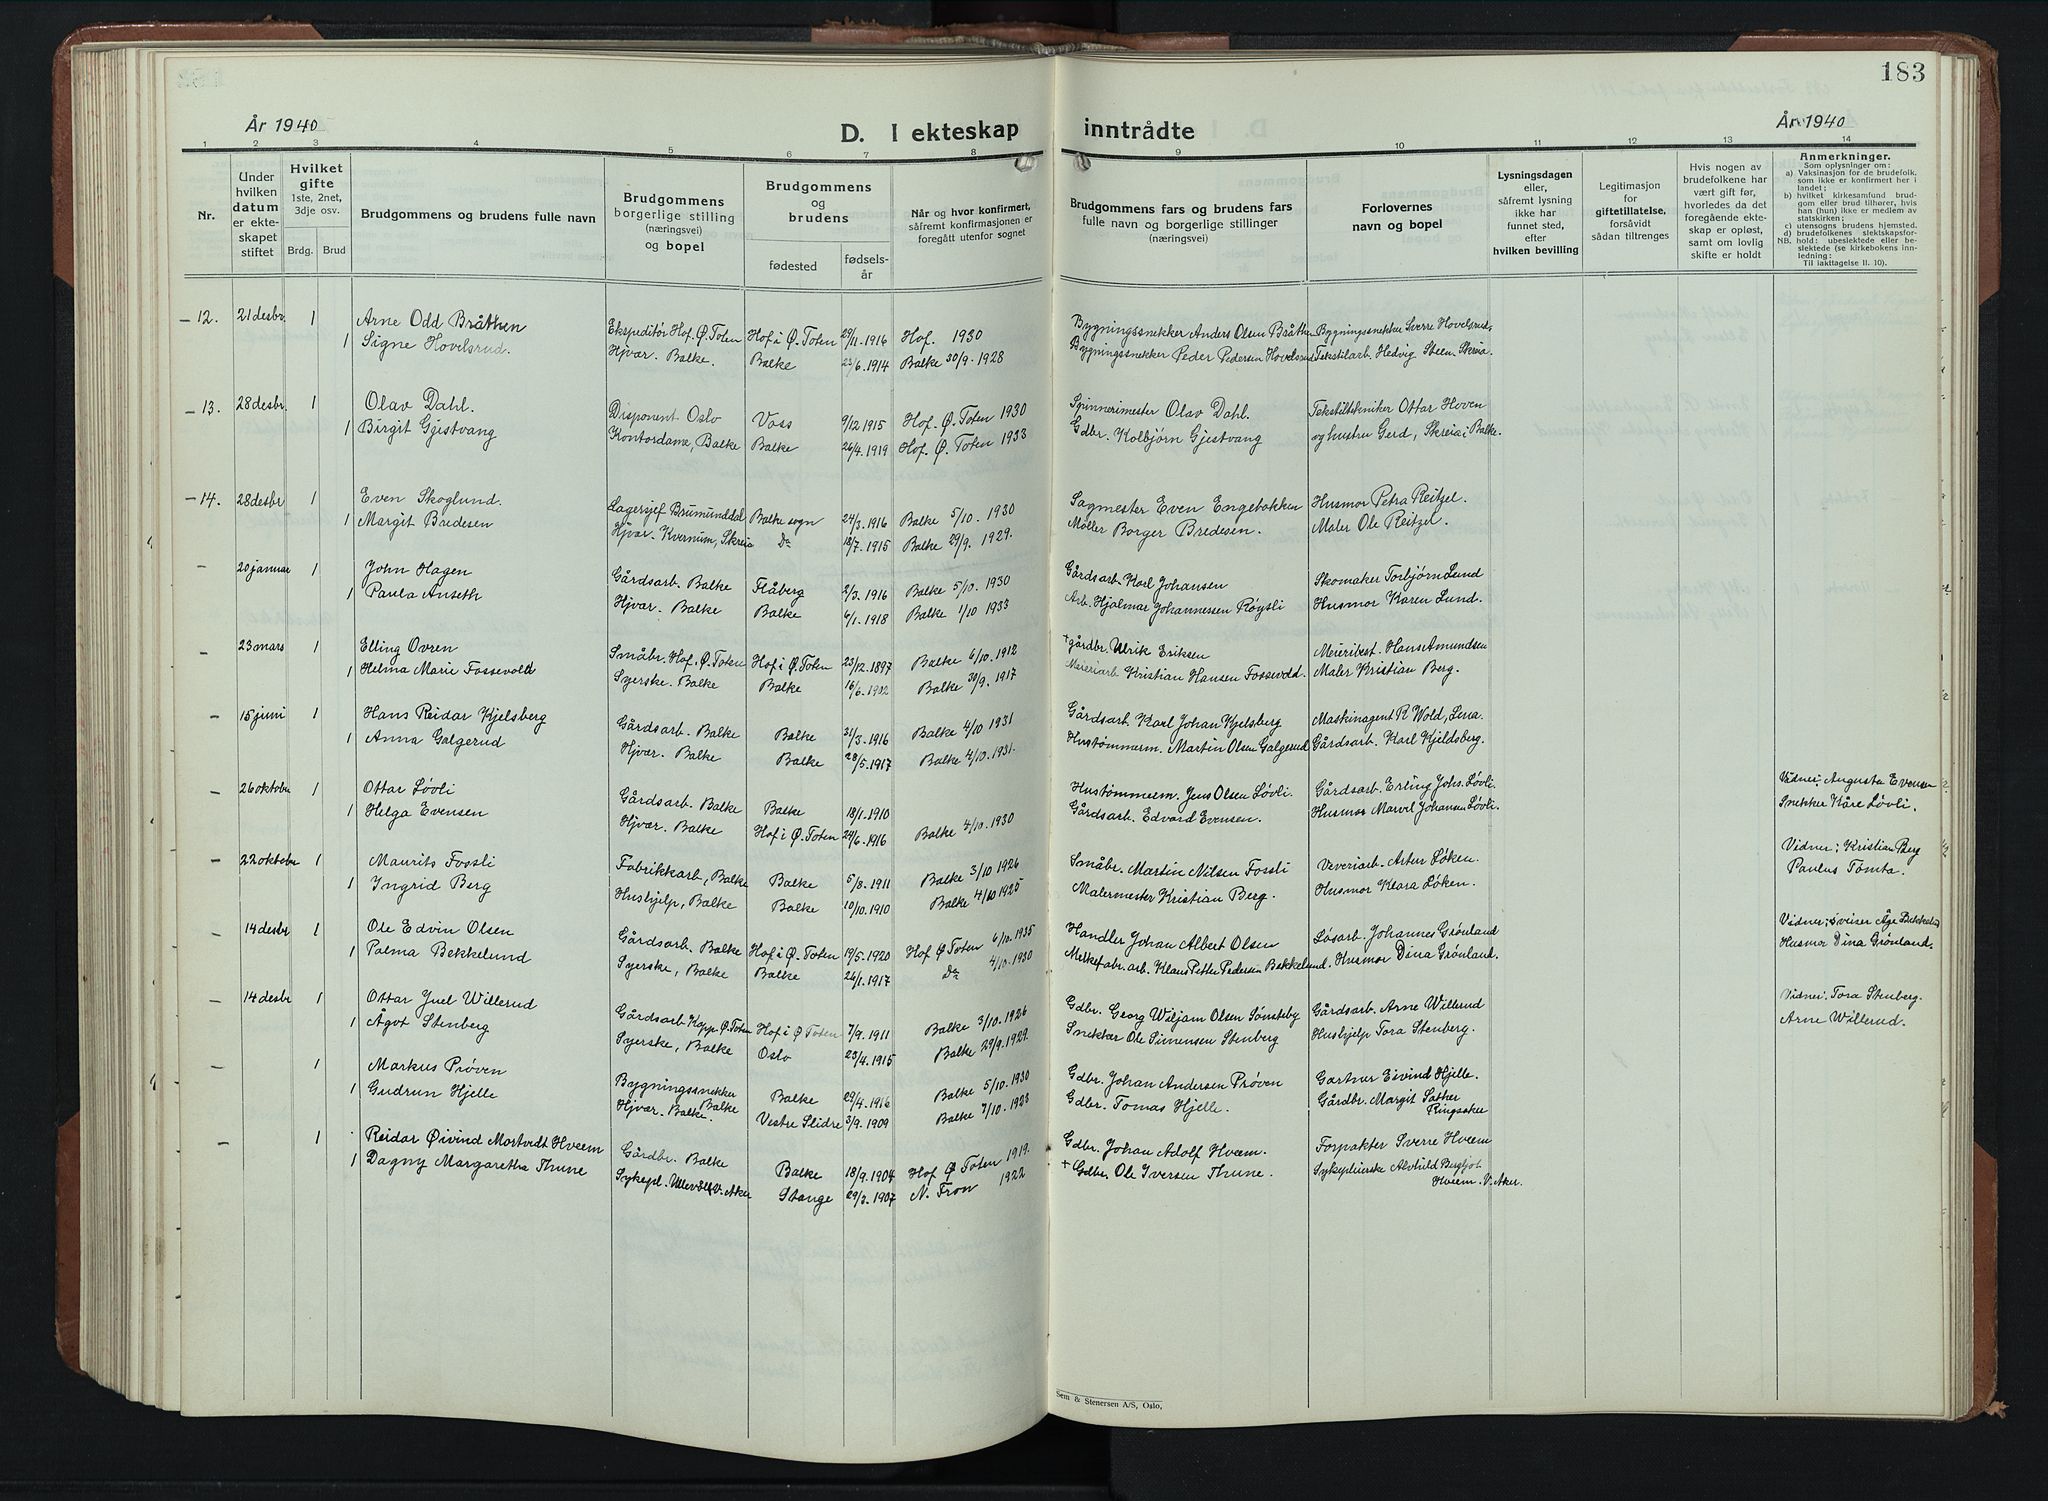 183
År 1940
D. I ekteskap inntrådte
År 1940
1 2 3 4 5 6 7 8 9 10 11 12 13 14
Nr.
Under hvilken datum er ekteskapet stiftet
Hvilket gifte 1ste, 2net, 3dje osv.
Brdg. Brud
Brudgommens og brudens fulle navn
Brudgommens borgerlige stilling (næringsvei) og bopel
Brudgommens og brudens
fødested
fødselsår
Når og hvor konfirmert, såfremt konfirmasjonen er foregått utenfor sognet
Brudgommens fars og brudens fars fulle navn og borgerlige stillinger (næringsvei)
Forlovernes navn og bopel
Lysningsdagen eller, såfremt lysning ikke har funnet sted, efter hvilken bevilling
Legitimasjon for giftetillatelse, forsåvidt sådan tiltrenges
Hvis nogen av brudefolkene har vært gift før, hvorledes da det foregående ekteskap er opløst, samt om lovlig skifte er holdt
Anmerkninger.
Som oplysninger om:
a) Vaksinasjon for de brudefolk, som ikke er konfirmert her i landet;
b) hvilket kirkesamfund brudgom eller brud tilhører, hvis han (hun) ikke er medlem av statskirken;
c) utensogns brudens hjemsted.
d) brudefolkenes slektskapsforhold: ubeslektede eller beslektede (se kirkebokens innledning:
NB. Til iakttagelse II. 10).
— 12. 21 desbr. 1 Arne Odd Bråthen Ekspeditör Hof. Ø. Toten Hof i Ø. Toten 29/11. 1916 Hof. 1930 Bygningssnekker Anders Olsen Bråthen Bygningssnekker Sverre Hovelsrud,
1 Signe Hovelsrud. Hjvær. Balke. Balke 23/6. 1914 Balke 30/9. 1928 Bygningssnekker Peder Pedersen Hovelsrud Tekstilarb. Hedvig Steen, Skreia.
— 13. 28 desbr. 1 Olav Dahl. Disponent Oslo Voss 9/12. 1915 Hof. Ø. Toten 1930 Spinnerimester Olav Dahl. Tekstiltekniker Ottar Hoven
1 Birgit Gjestvang Kontordame, Balke Balke 26/4. 1919 Hof. Ø. Toten 1933 Gdbr. Kolbjørn Gjestvang og hustru Gerd, Skreia i Balke.
— 14. 28 desbr 1 Even Skoglund. Lagersjef Brumunddal Balke sogn 24/3. 1916 Balke 5/10. 1930 Sagmester Even Engebakken Husmor Petra Reitzel.
1 Margit Bredesen Hjvær. Kvernum, Skreia Do 18/7. 1915 Balke 29/9. 1929. Møller Borger Bredesen. Maler Ole Reitzel.
— 20 januar 1 John Hagen Gårdsarb. Balke Flåberg 2/3. 1916 Balke 5/10. 1930 Gårdsarb. Karl Johansen Skomaker Torbjörn Lund
1 Paula Anseth Hjvær. Balke Balke 6/1. 1918 Balke 1/10 1933 Arb. Hjalmar Johannessen Röysli Husmor Karen Lund.
— 23 mars 1 Elling Ovren Småbr. Hof. Ø. Toten Hof i Ø. Toten 23/12. 1897 Balke 6/10. 1912 + gårdbr. Ulrik Eriksen Meieribest. Hans Amundsen
1 Helma Marie Fossevold Syerske. Balke Balke 16/6. 1902 Balke 30/9. 1917 Meieriarb. Kristian Hansen Fossevold. Maler Kristian Berg.
— 15 juni 1 Hans Reidar Kjelsberg Gårdsarb. Balke Balke 31/3. 1916 Balke 4/10 1931 Gårdsarb. Karl Johan Kjelsberg Maskinagent R Wold, Lena.
1 Anna Galgerud Hjvær. Balke Balke 28/5. 1917 Balke 4/10. 1931. Hustømmerm. Martin Olsen Galgerud Gårdsarb. Karl Kjeldsberg.
— 26 oktobr 1 Ottar Løvli Gårdsarb. Balke Balke 18/1. 1910 Hustømmerm. Jens Olsen Løvli. Gårdsarb. Erling Johs. Løvli. Vidner: Augusta Evensen
1 Helga Evensen Hjvær. Balke Hof i Ø. Toten 24/6. 1916 Balke 4/10. 1930 Gårdsarb. Edvard Evensen. Husmor Marvel Johansen Løvli. Snekker Kåre Løvli.
— 22 oktobr 1 Maurits Fossli Fabrikkarb., Balke Balke 5/8. 1911 Balke 3/10 1926 Småbr. Martin Nilsen Fossli Veveriarb. Artur Løken. Vidner: Kristian Berg
1 Ingrid Berg Hushjelp, Balke Balke 10/10. 1910 Balke 4/10 1925 Malermester Kristian Berg. Husmor Klara Løken. Paulus Tømta.
— 14 desbr 1 Ole Edvin Olsen Gårdsarb. Balke Hof i Ø. Toten 19/5. 1920 Hof Ø Toten 6/10. 1935 Handler Johan Albert Olsen Løsarb. Johannes Grønland Vidner: sveiser Åge Bekkelund
1 Palma Bekkelund Syerske, Balke Balke 26/1. 1917 Do 4/10. 1930 Melkefabr. arb. Klaus Petter Pedersen Bekkelund. Husmor Dina Grønland. Husmor Dina Grønland.
— 14 desbr 1 Ottar Juel Willerud Gårdsarb. Kapp Ø. Toten Hof i Ø Toten 7/9. 1911 Balke 3/10. 1926 Gdbr. Georg Wiljam Olsen Sønsteby Gårdsarb. Arne Willerud Vidner: Tora Stenberg.
1 Ågot Stenberg Syerske, Balke Oslo 23/4. 1915 Balke 29/9. 1929. Snekker Ole Simensen Stenberg Hushjelp Tora Stenberg. Arne Willerud.
— 1 Markus Prøven Bygningssnekker Balke Balke 29/4. 1916 Balke 5/10. 1930 Gdbr. Johan Andersen Prøven Gartner Eivind Hjelle.
1 Gudrun Hjelle Hjvær. Balke. Vestre Slidre 3/9. 1909 Balke 7/10. 1923 Gdbr. Tomas Hjelle. Gårdbr. Margit Sather Ringsaker
— 1 Reidar Øivind Mortvedt Hveem Gårdbr. Balke Balke 18/9. 1904 Hof Ø Toten 1919. Gdbr. Johan Adolf Hveem. Forpakter Sverre Hveem
1 Dagny Margaretha Thune Sykepl. Ullevål V. Aker Stange 29/3. 1907 N. Fron 1922 + Gdbr. Ole Iversen Thune. Sykepleierske Alvhild Bergljot Hveem. V. Aker.
Sem & Stenersen A/S, Oslo.